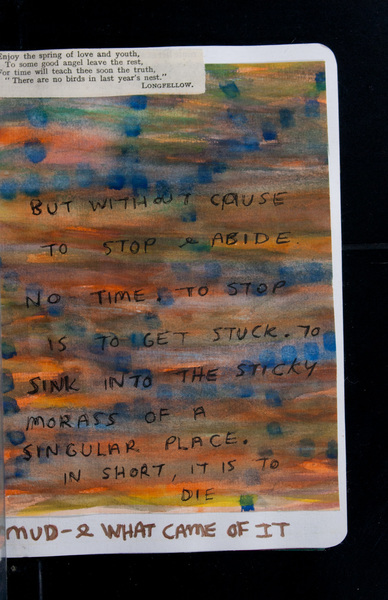 Enjoy the spring of love and youth,
To some good angel leave the rest,
For time will teach thee soon the truth,
"There are no birds in last year's nest."
LONGFELLOW.
BUT WITHOUT CAUSE
TO STOP & ABIDE.
NO TIME. TO STOP
IS TO GET STUCK. TO
SINK INTO THE STICKY
MORASS OF A
SINGULAR PLACE.
IN SHORT, IT IS TO
DIE
MUD-& WHAT CAME OF IT